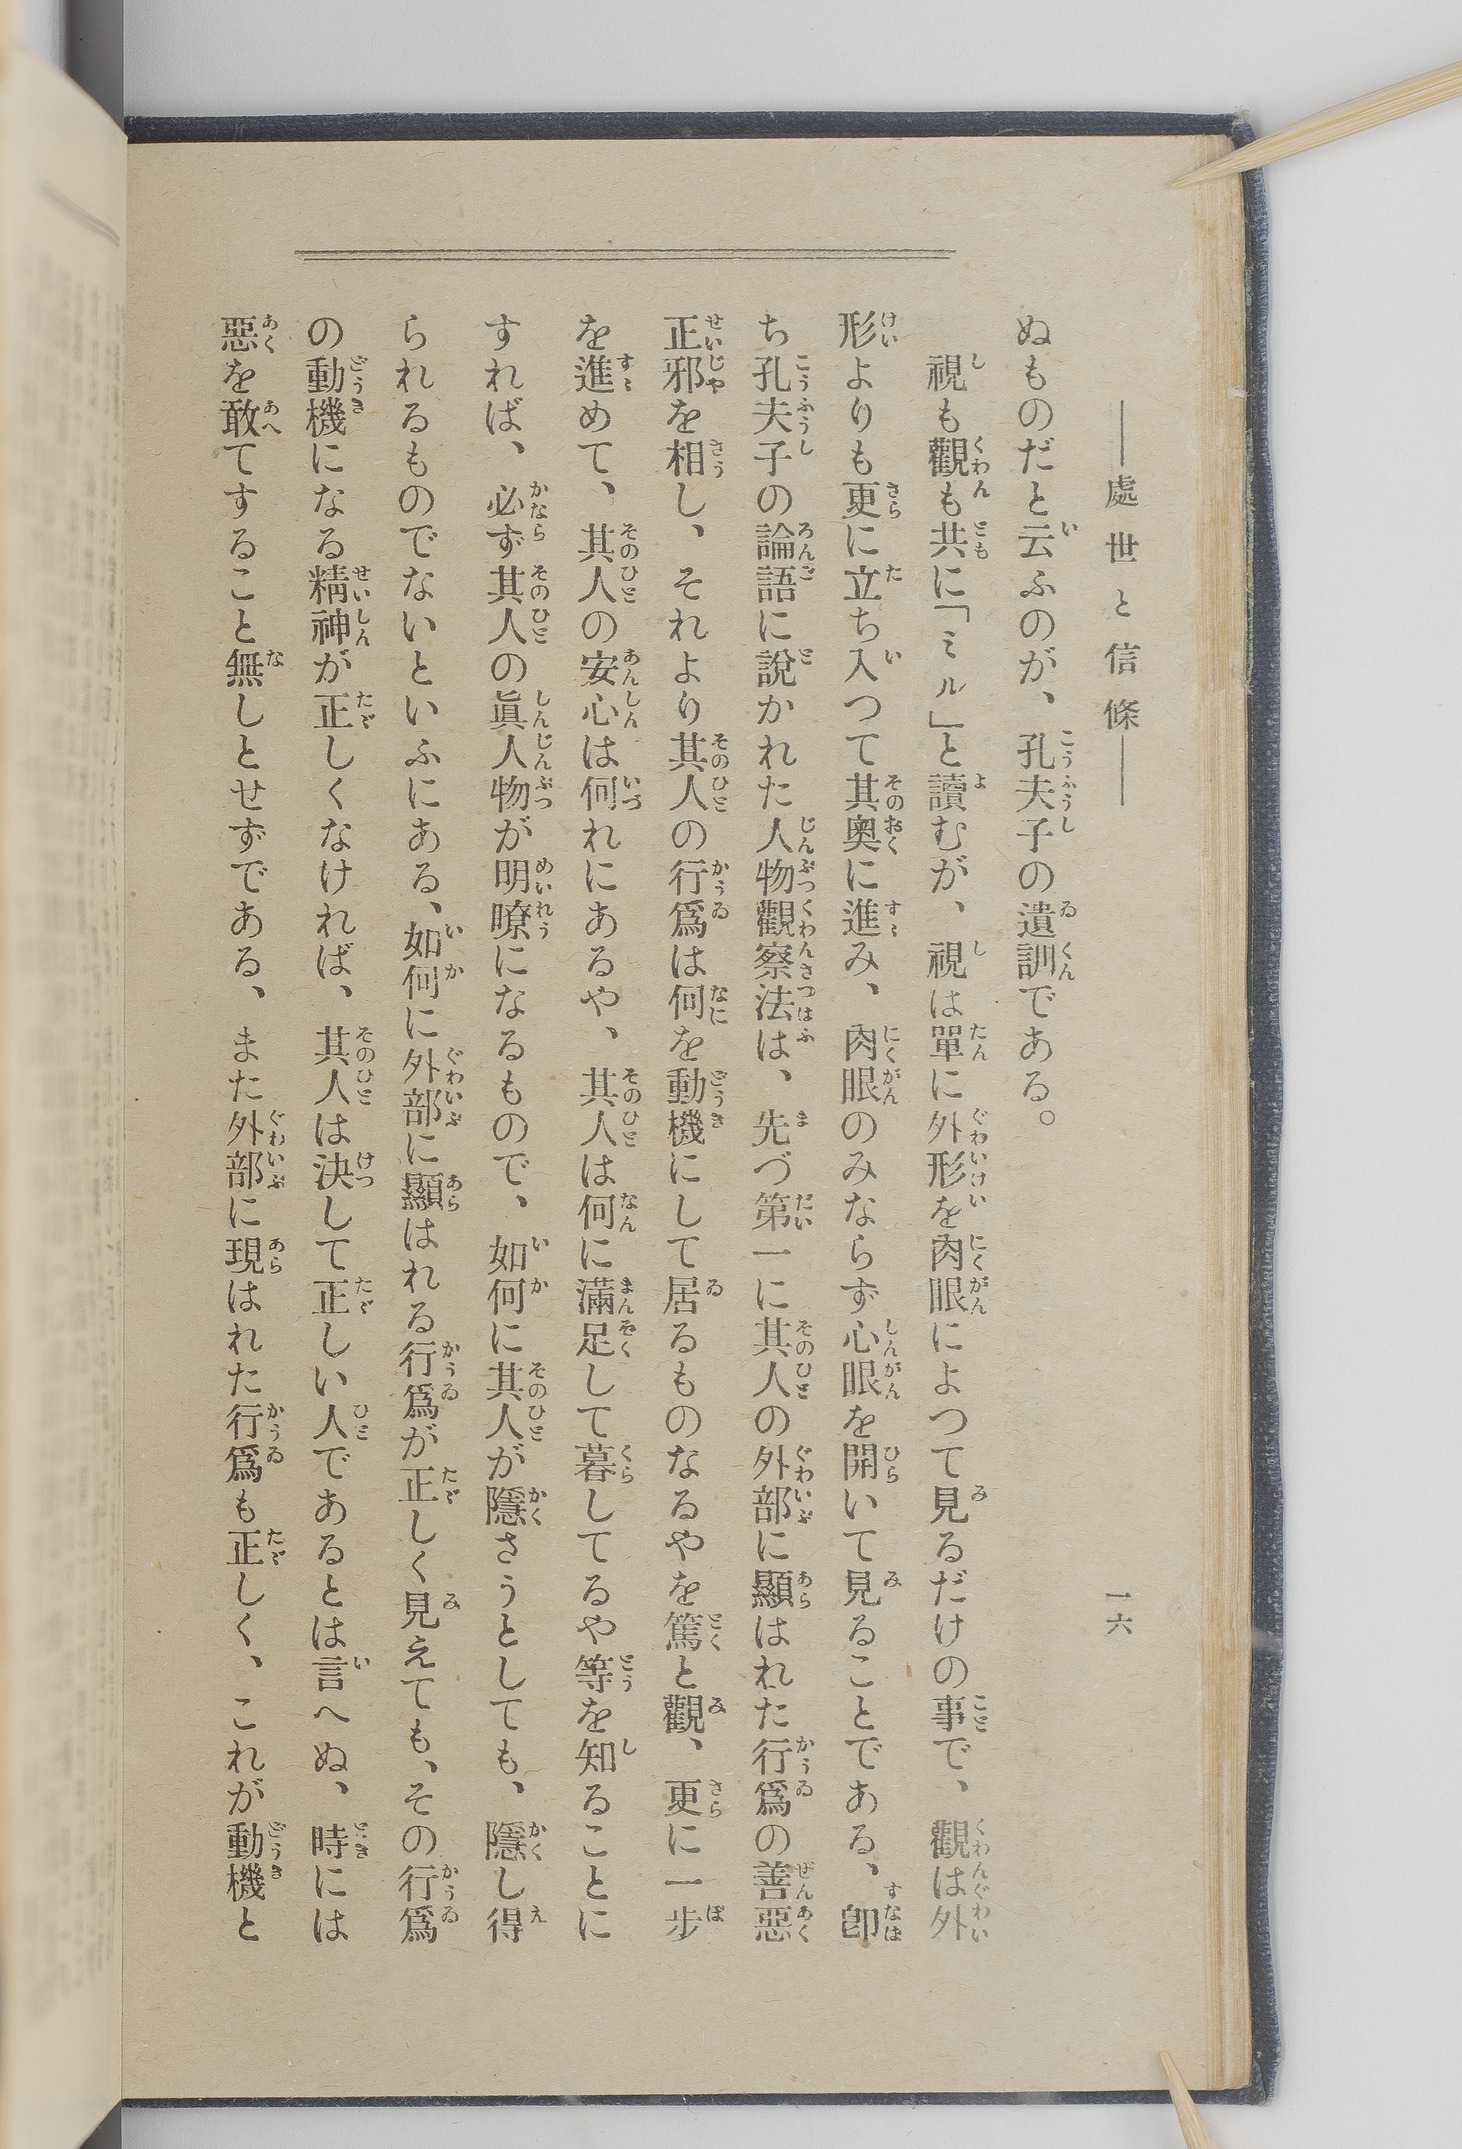 ――處世と信條――
一六
ぬものだと云ふのが、孔夫子の遺訓である。
視も觀も共に「ミル」と讀むが、視は單に外形を肉眼によつて見るだけの事で、觀は外
形よりも更に立ち入つて其奧に進み、肉眼のみならず心眼を開いて見ることである、卽
ち孔夫子の論語に說かれた人物觀察法は、先づ第一に其人の外部に顯はれた行爲の善惡
正邪を相し、それより其人の行爲は何を動機にして居るものなるやを篤と觀、更に一步
を進めて、其人の安心は何れにあるや、其人は何に滿足して暮してるや等を知ることに
すれば、必ず其人の眞人物が明瞭になるもので、如何に其人が隱さうとしても、隱し得
られるものでないといふにある、如何に外部に顯はれる行爲が正しく見えても、その行爲
の動機になる精神が正しくなければ、其人は決して正しい人であるとは言へぬ、時には
惡を敢てすること無しとせずである、また外部に現はれた行爲も正しく、これが動機と